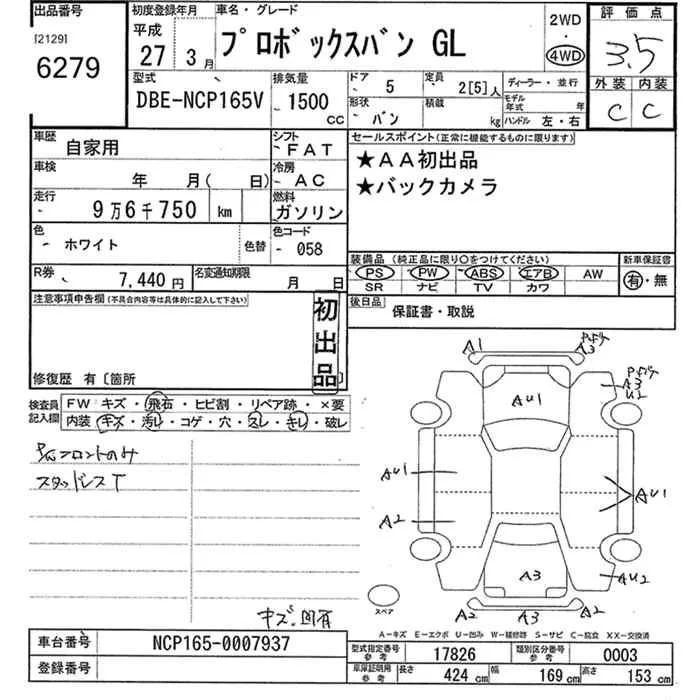 出品番号
[2129]
6279
初度登録年月
平成
27年 3月
車名・グレード
プロボックスバン GL
2WD
・
4WD
評価点
3.5
外装 内装
C C
型式
DBE-NCP165V
排気量
1500
CC
ドア
5
定員
2[5]人
形状
バン
積載
kg
ディーラー・並行
モデル年式 年
ハンドル 左・右
車歴
自家用
シフト
FAT
車検
年 月( 日)
冷房
AC
走行
9万6千750 km
燃料
ガソリン
色
ホワイト
色替
色コード
058
R券
7,440円
名変通知期限
月 日
セールスポイント(正常に機能するものに限ります)
★AA初出品
★バックカメラ
装備品(純正品に限り○をつけてください)
PS PW ABS エアB AW
SR ナビ TV カワ
新車保証書
有・無
後日品
保証書・取説
注意事項申告欄(不具合内容等は具体的に記入して下さい)
初出品
修復歴 有〔箇所 〕
検査員記入欄
FW キズ・飛石・ヒビ割・リペア跡・×要
内装 キズ・汚レ・コゲ・穴・スレ・キレ・破レ
フロントのみ
スタッドレスT
A1
A3
A3
U2
AU1
AU1
AU1
A2
A3
AU2
A2
A3
A2
スペア
A-キズ E-エクボ U-凹み W-補修跡 S-サビ C-腐食 XX-交換済
車台番号
NCP165-0007937
登録番号
型式指定番号
参考
17826
類別区分番号
参考
0003
車庫証明用
参考
長さ
424 cm
幅
169 cm
高さ
153 cm